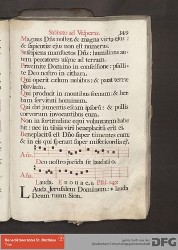 Sabbato ad Vesperas. 349
Magnus Dñs noster, & magna virtus eius:
& sapientiæ eius non est numerus.
Suscipiens mansuetos Dñs: humilians au-
tem peccatores usque ad terram.
Præcinite Domino in confessione: psalli-
te Deo nostro in cithara.
Qui operit cælum nubibus: & parat terræ
pluviam.
Qui producit in montibus fœnum: & her-
bam servituti hominum.
Qui dat iumentis escam ipsorum: & pullis
corvorum invocantibus eum.
Non in fortitudine equi voluntatem habe-
bit: nec in tibiis viri beneplacitum erit ei.
Beneplacitum est Dño super timentes eum:
& in eis qui sperant super misericordia eius.
Añã.
Deo nostro jucunda sit laudatio.
Añã.
Lauda. E u o u a e.
Lauda Jerusalem Dominum: lauda
Deum tuum Sion.
DFG